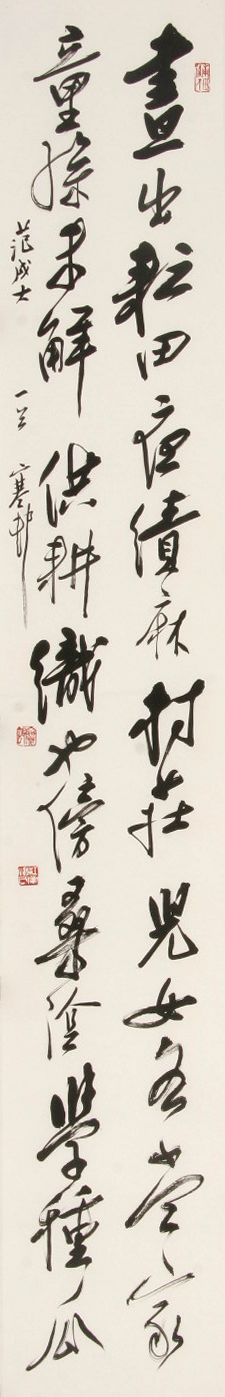 晝出耘田夜績麻村莊兒女各當家
童孫未解供耕織也傍桑陰學種瓜
范成大一首